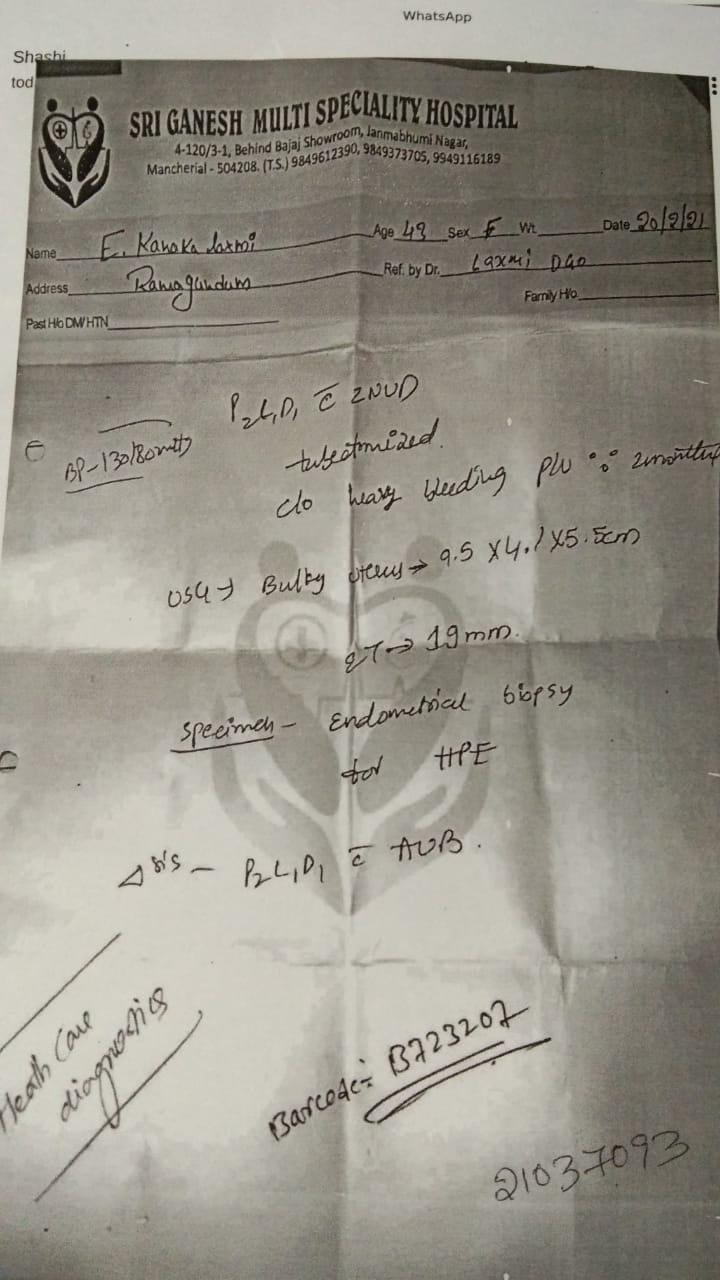 WhatsApp
Shashi
tod
SRI GANESH MULTI SPECIALITY HOSPITAL
4-120/3-1, Behind Bajaj Showroom, Janmabhumi Nagar,
Mancherial - 504208. (T.S.) 9849612390, 9849373705, 9949116189
Name E. Kanaka laxmi Age 49 Sex F Wt. Date 20/9/21
Address Ramagundam Ref. by Dr. Laxmi DGO
Past H/o DM/HTN Family H/o
P2L1D1 c̄ 2NVD
BP-130/80
tubectomized.
c/o heavy bleeding P/V 2months
USG → Bulky uterus → 9.5 X 4.1 X 5.5cm
ET → 19mm.
specimen - Endometrical biopsy
for HPE
Δsis - P2L1D1 c̄ AUB.
Heath Care
diagnostics
Barcode:- B723207
21037093